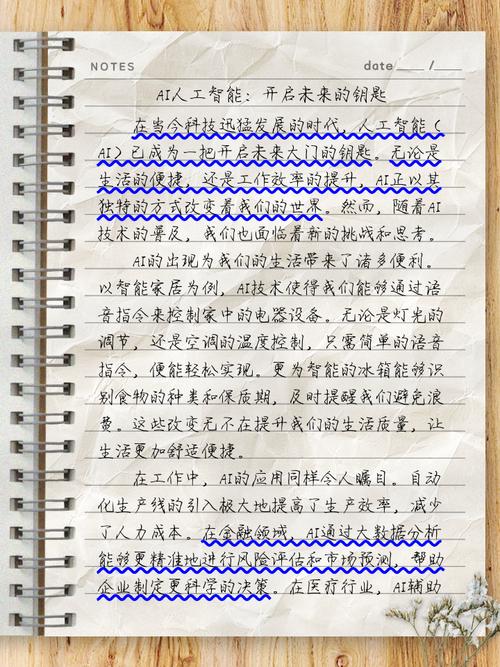 NOTES
date ____ / ____
AI人工智能：开启未来的钥匙
在当今科技迅猛发展的时代，人工智能（
AI）已成为一把开启未来大门的钥匙。无论是
生活的便捷，还是工作效率的提升，AI正以其
独特的方式改变着我们的世界。然而，随着AI
技术的普及，我们也面临着新的挑战和思考。
AI的出现为我们的生活带来了诸多便利。
以智能家居为例，AI技术使得我们能够通过语
音指令来控制家中的电器设备。无论是灯光的
调节，还是空调的温度控制，只需简单的语音
指令，便能轻松实现。更为智能的冰箱能够识
别食物的种类和保质期，及时提醒我们避免浪
费。这些改变无不在提升我们的生活质量，让
生活更加舒适便捷。
在工作中，AI的应用同样令人瞩目。自动
化生产线的引入极大地提高了生产效率，减少
了人力成本。在金融领域，AI通过大数据分析
能够更精准地进行风险评估和市场预测，帮助
企业制定更科学的决策。在医疗行业，AI辅助